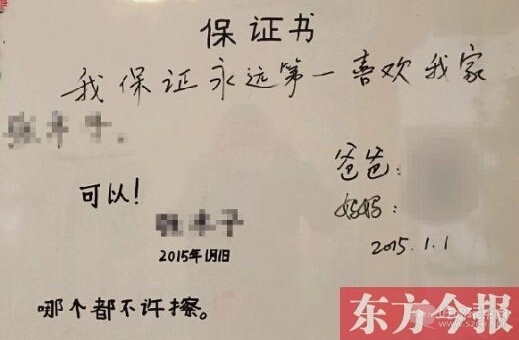 保证书
我保证永远第一喜欢我家
可以！
2015年1月1日
爸爸：
妈妈：
2015.1.1
哪个都不许擦。
东方今报